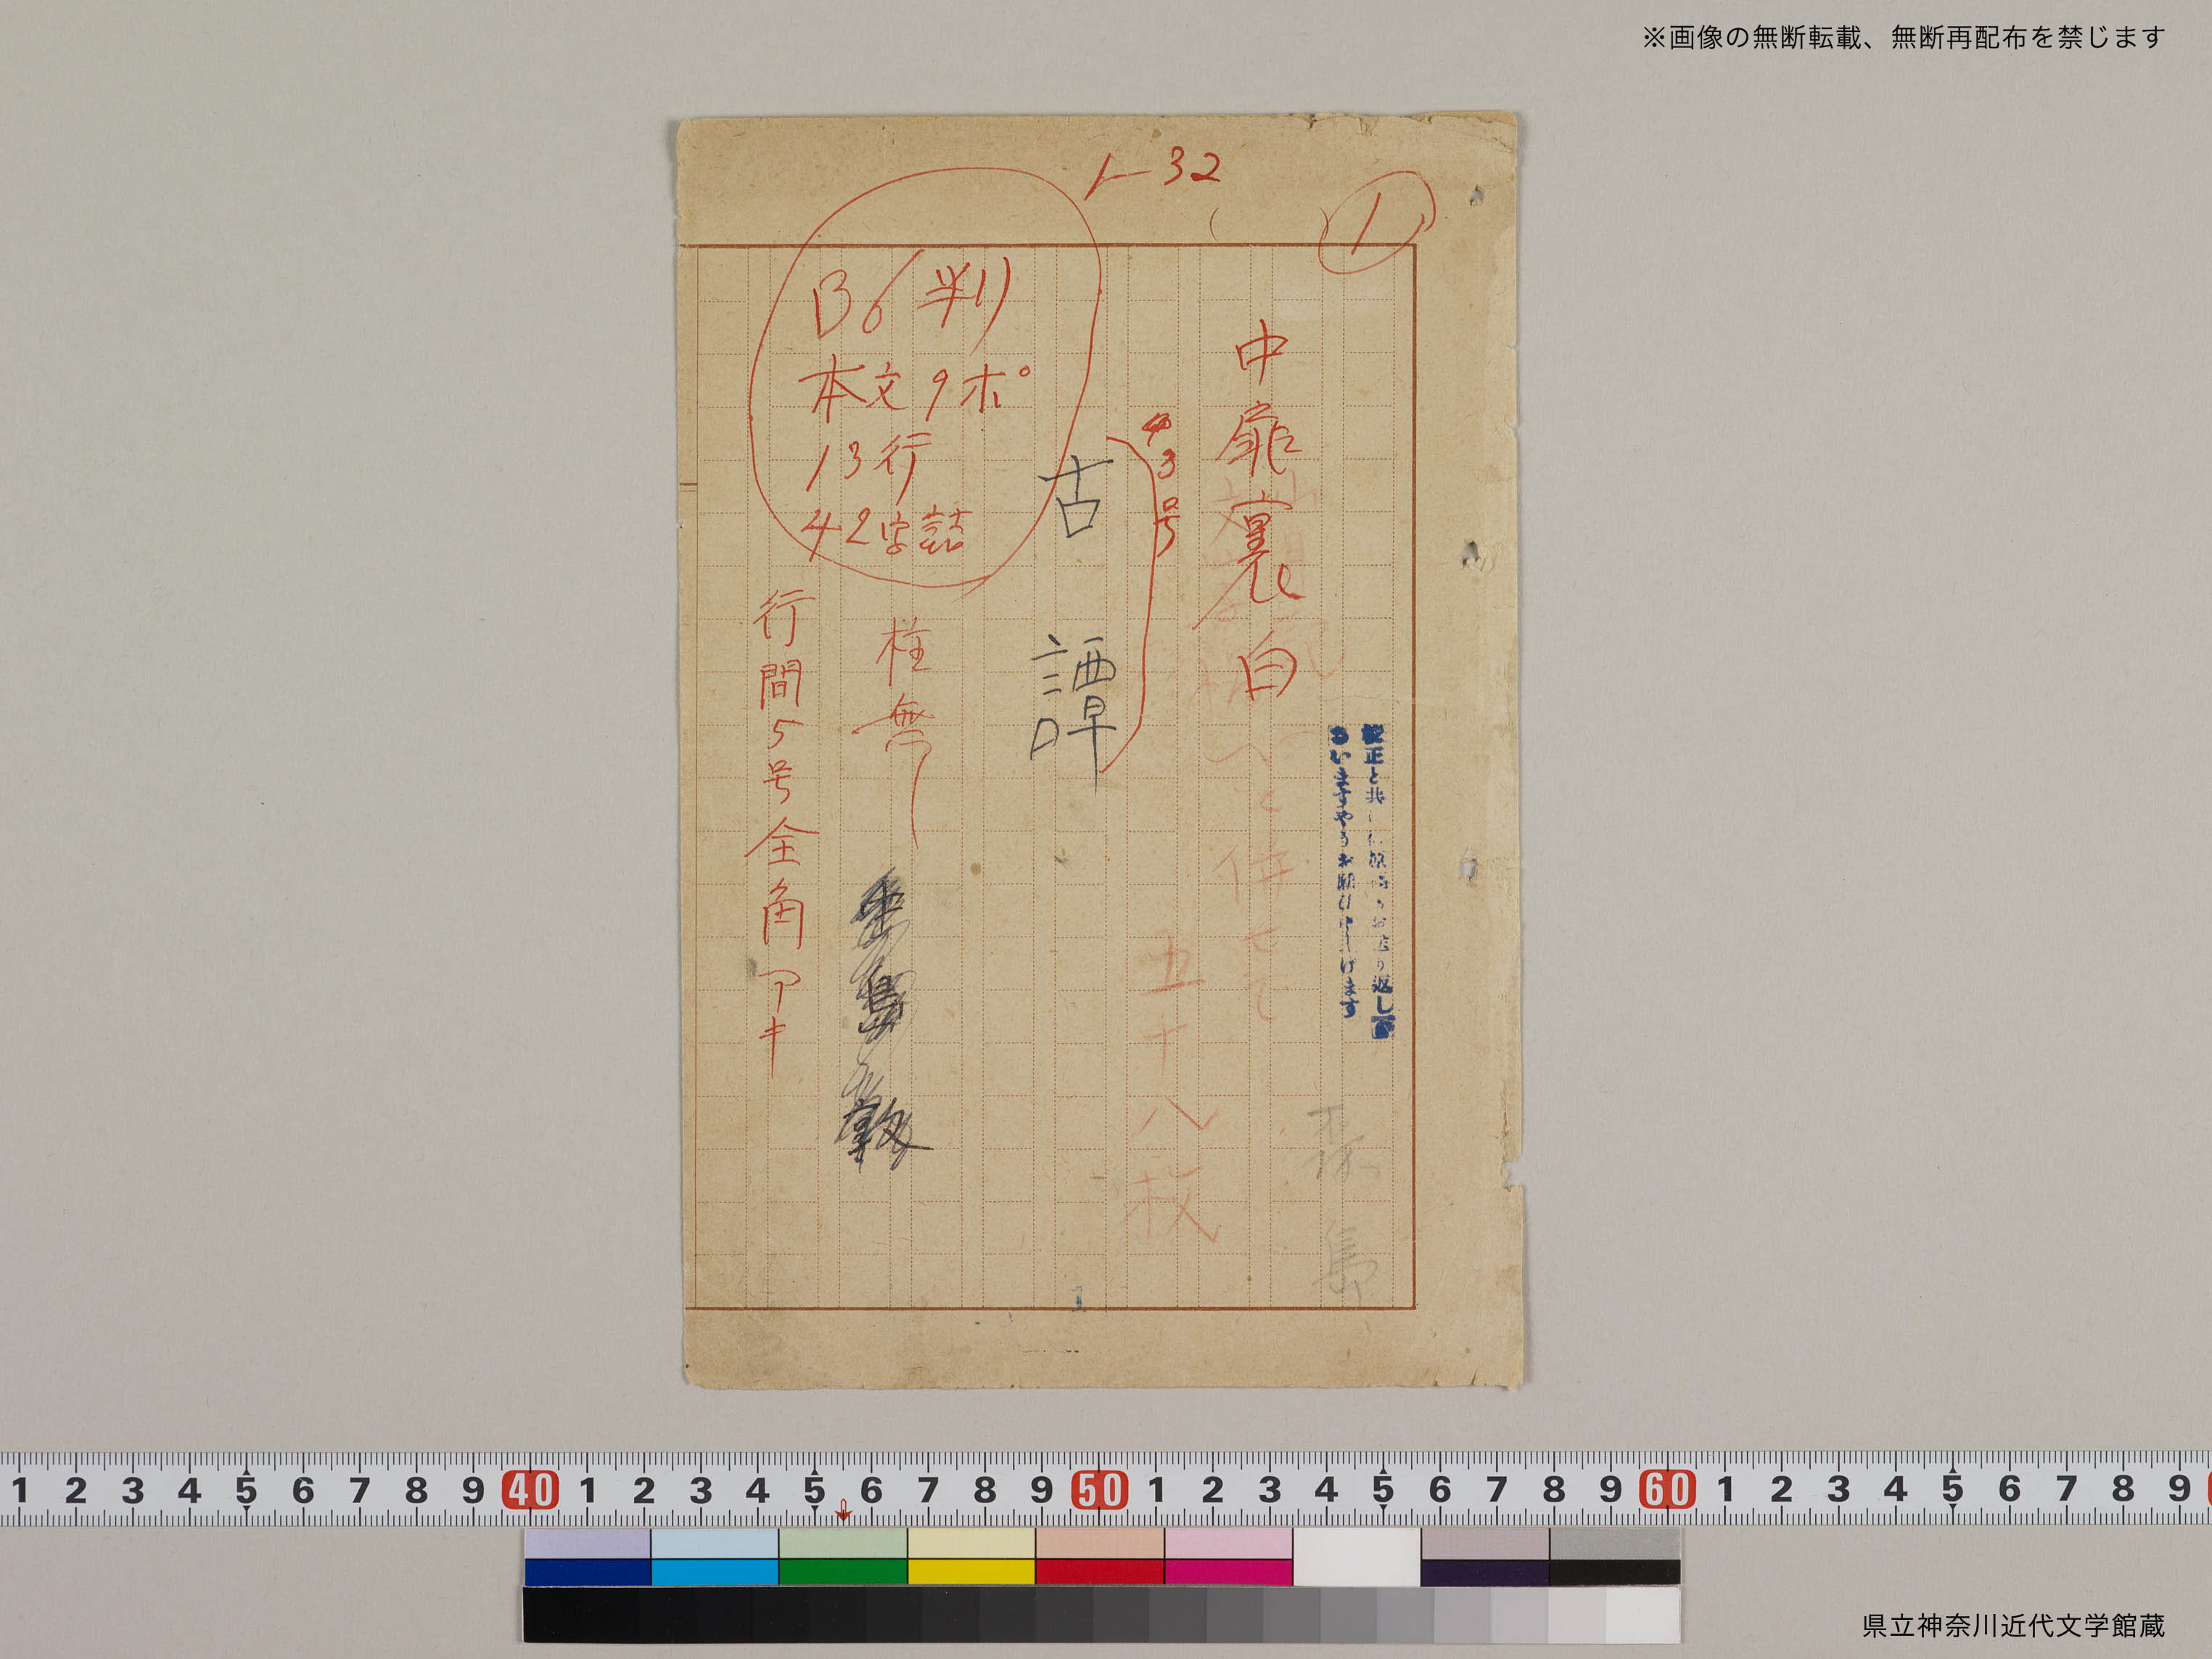 ※画像の無断転載、無断再配布を禁じます
1-32
1
中扉裏白
と併せて
五十八枚
3号
古譚
B6判
本文9ポ
13行
42字詰
柱無し
行間5号全角アキ
校正と共に原稿もお送り返し下
さいますやうお願ひ申上げます
島
1 2 3 4 5 6 7 8 9 40 1 2 3 4 5 6 7 8 9 50 1 2 3 4 5 6 7 8 9 60 1 2 3 4 5 6 7 8 9
県立神奈川近代文学館蔵